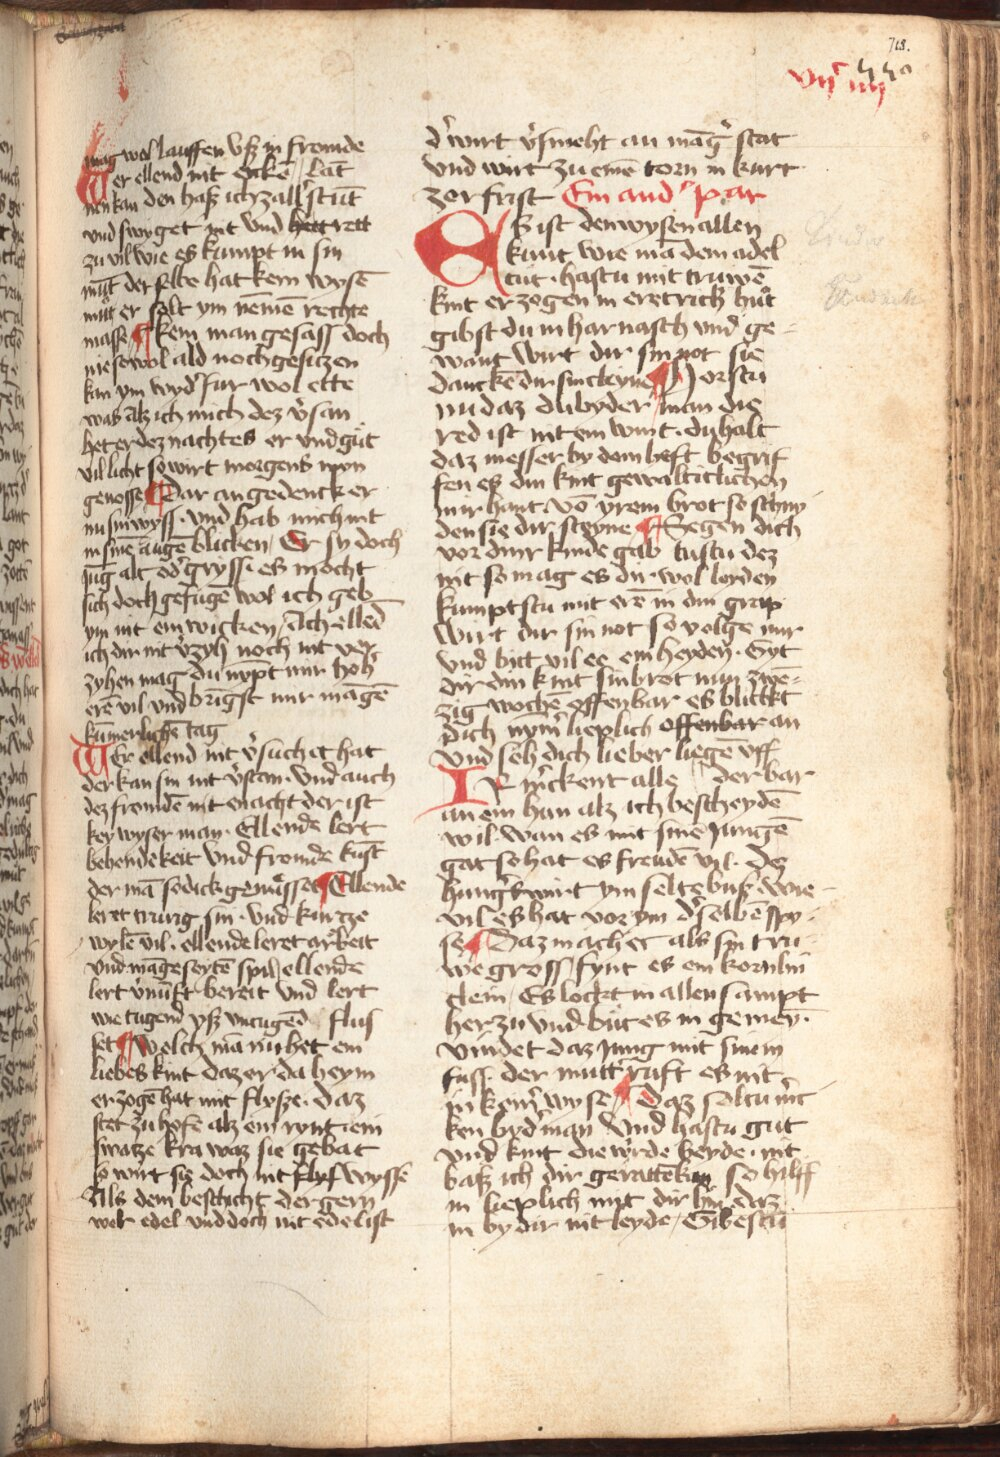 mag wol lauffen vſz in fromde
Wer ellend nit erkēn / lāt
nen kan den haß ich zall' ſtūt
vnd ſwyget nit vnd hett rett
zu vil wie es kumpt in ſin
mūt der ſelbe hat kein wyſē
mūt er ſolt ym nēmē rechte
maſſe ¶ kein man geſaſſ doch
nie ſo wol ald noch geſitzen
kan ym wyd' fur wol ette
was Alz ich mich dez v'ſan
het er dez nachtes er vnd gůt
vil licht ſo wirt morgens myn
genoſſe ¶ Dar an gedenck er
nu ſin wyſſ · vnd hab mich nit
in ſinē augē blicken / Er ſy doch
jūg alt od' gryſſ es mocht
ſich doch gefugē wol ich geb
ym nit ein wicken / Ach ellēd
ich dir nit v'zyh noch nit ver
zyhen mag du nympt mir hoh'
erē vil vnd bringſt mir māgē
kūmerlichē tag
Wer ellend nit v'ſuchet hat
der kan ſin nit v'ſtan · vnd auch
dez fromdē nit enacht der iſt
key wyſer man · Ellende lert
behendekeit vnd fromde kūſt
der mā ſo dick gemůſſet ¶ Ellende
leret trurig ſin · vnd kurtze
wylē vil · ellende leret arbeit
vnd māgeſeytē ſpil / ellende
lert v'nūft bereit vnd lert
wie tugend vſz vntugēd fluſ
ſet ¶ Welch mā nu het ein
liebes kint daz er da heym
erzogē hat mit flyſze · daz
ſtet zu hofe alz ein rynt ein
ſwatze kra waz ſie gebat
ſo wirt ſie doch nit flyſ wyſſe
Als dem beſchicht der gern
wer edel vnd doch nit edel iſt
718.
d' wirt v'ſmeht an māg' ſtat
vnd wirt zu einē torn in kurt
zer friſt Ein and' par
Es iſt den wyſen allen
kunt wie mā dem adel
tůt · haſtu mit truwē
kint erzogen in ertrich hůt
gibſt du in harnaſch vnd ge-
want wirt dir ſin not ſie
danckē dir ſin cleyne ¶ Horſtu
nu daz du byder man die
red iſt nit ein wint · du halt
daz meſſer by dem heft begrif
fen es din kint gewalticlichen
in ir hant vō yrem brot ſo ſchny
den ſie dir cleyne ¶ Segen dich
vor dinr kinde gab tuſtu dez
nit ſo mag es dir wol leyden
kumpſtu mit erē in din grap
wirt dir ſin not ſo volge mir
vnd bitt vil ee ein heyden · Gyt
dir din kint ſin brot nun zwē-
zig wochē offenbar es blickt
dich nym' lieplich offenbar an
vnd ſeh dich lieber ligē vff
Ir m'ckent alle / der bar
an ein han alz ich beſcheydē
wil · wan es mit ſinē jungē
gat ſo hat es freudē vil · Dez
hung's wirt ym ſelte bůſ · wie-
vil es hat vor ym d' ſelbē ſpy-
ſe ¶ Daz machet als ſin tru-
we groſſ / fynt es ein kornlin
clein / Es lockt in allen ſampt
herzu vnd büt es in gemey ·
vindet daz jung mit ſinem
fuſſ · der mutt' ruft es nit
in kein' wyſe ¶ Daz ſoltu m'
ken byd' man vnd haſtu gut
vnd kint die w'rde beyde · nit
baſz ich dir geratē kan ſo hilff
in lieplich mit dir hin daz
in by dir nit leyde / Gibeſtu